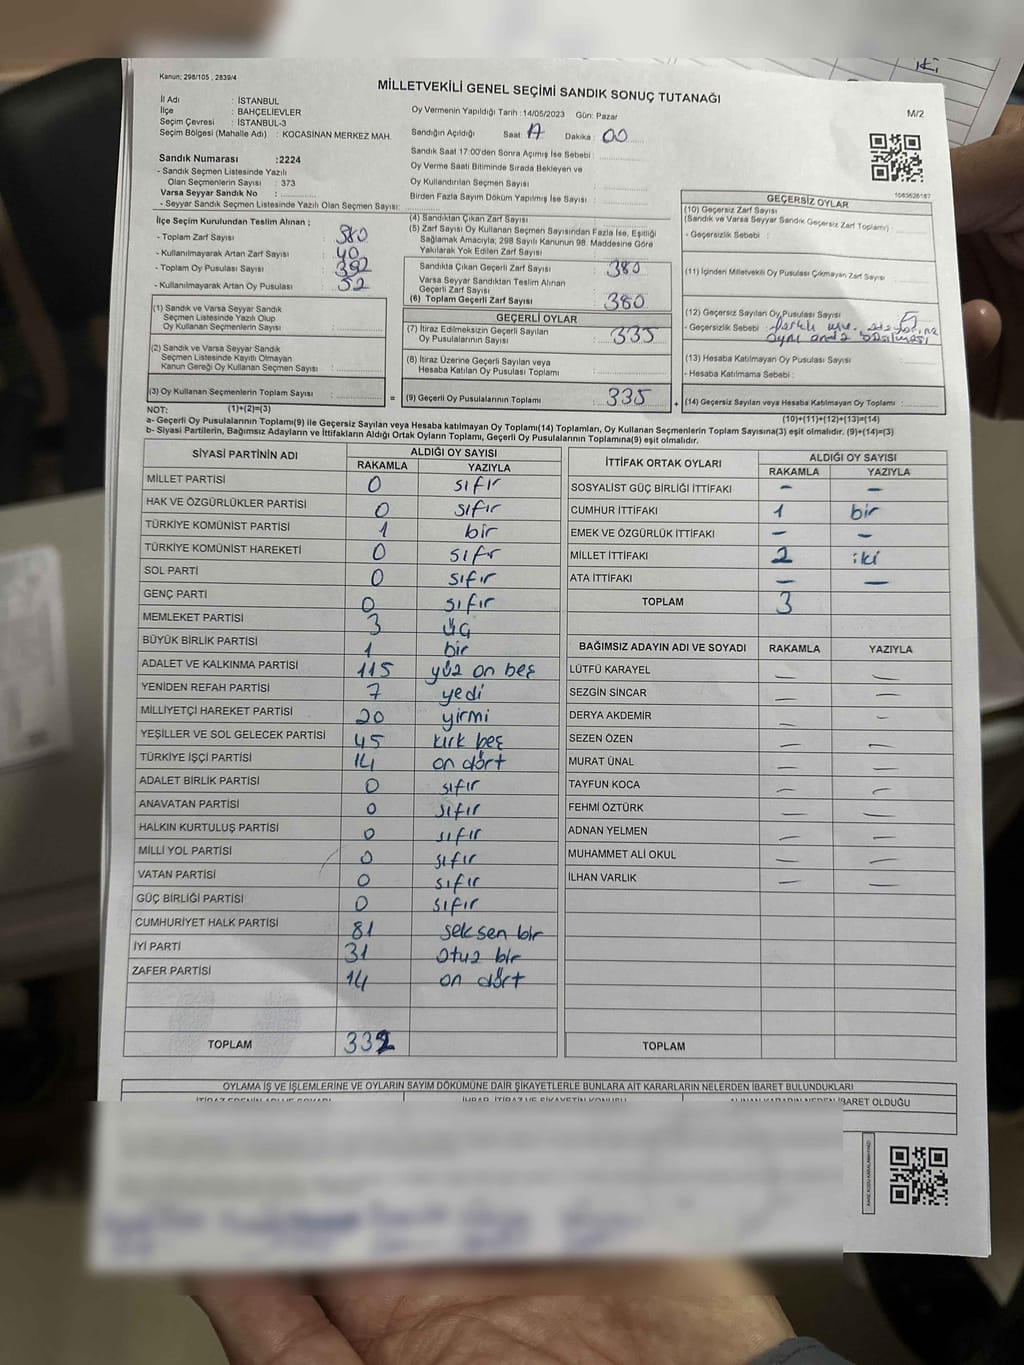 iki
Kanun: 298/105 , 2839/4
MİLLETVEKİLİ GENEL SEÇİMİ SANDIK SONUÇ TUTANAĞI
M/2
İl Adı : İSTANBUL
İlçe : BAHÇELİEVLER
Seçim Çevresi : İSTANBUL-3
Seçim Bölgesi (Mahalle Adı) : KOCASİNAN MERKEZ MAH.
Sandık Numarası :2224
- Sandık Seçmen Listesinde Yazılı
Olan Seçmenlerin Sayısı : 373
Varsa Seyyar Sandık No :
- Seyyar Sandık Seçmen Listesinde Yazılı Olan Seçmen Sayısı:
Oy Vermenin Yapıldığı Tarih :14/05/2023 Gün: Pazar
Sandığın Açıldığı Saat: Dakika : 00
Sandık Saat 17:00'den Sonra Açımış İse Sebebi :
Oy Verme Saati Bitiminde Sırada Bekleyen ve
Oy Kullandırılan Seçmen Sayısı :
Birden Fazla Sayım Döküm Yapılmış İse Sayısı :
1083626187
İlçe Seçim Kurulundan Teslim Alınan ;
- Toplam Zarf Sayısı : 380
- Kullanılmayarak Artan Zarf Sayısı : 40
- Toplam Oy Pusulası Sayısı : 392
- Kullanılmayarak Artan Oy Pusulası : 52
(1) Sandık ve Varsa Seyyar Sandık
Seçmen Listesinde Yazılı Olup
Oy Kullanan Seçmenlerin Sayısı :
(2) Sandık ve Varsa Seyyar Sandık
Seçmen Listesinde Kayıtlı Olmayan
Kanun Gereği Oy Kullanan Seçmen Sayısı :
(3) Oy Kullanan Seçmenlerin Toplam Sayısı :
(1)+(2)=(3)
(4) Sandıktan Çıkan Zarf Sayısı :
(5) Zarf Sayısı Oy Kullanan Seçmen Sayısından Fazla İse, Eşitliği
Sağlamak Amacıyla; 298 Sayılı Kanunun 98. Maddesine Göre
Yakılarak Yok Edilen Zarf Sayısı :
Sandıkta Çıkan Geçerli Zarf Sayısı : 380
Varsa Seyyar Sandıktan Teslim Alınan
Geçerli Zarf Sayısı :
(6) Toplam Geçerli Zarf Sayısı : 380
GEÇERLİ OYLAR
(7) İtiraz Edilmeksizin Geçerli Sayılan
Oy Pusulalarının Sayısı : 335
(8) İtiraz Üzerine Geçerli Sayılan veya
Hesaba Katılan Oy Pusulası Toplamı :
= (9) Geçerli Oy Pusulalarının Toplamı : 335 +
GEÇERSİZ OYLAR
(10) Geçersiz Zarf Sayısı
(Sandık ve Varsa Seyyar Sandık Geçersiz Zarf Toplamı) :
- Geçersizlik Sebebi :
(11) İçinden Milletvekili Oy Pusulası Çıkmayan Zarf Sayısı
(12) Geçersiz Sayılan Oy Pusulası Sayısı : 5
- Geçersizlik Sebebi :
aynı anda basılması
(13) Hesaba Katılmayan Oy Pusulası Sayısı :
- Hesaba Katılmama Sebebi :
(14) Geçersiz Sayılan veya Hesaba Katılmayan Oy Toplamı :
(10)+(11)+(12)+(13)=(14)
NOT:
a- Geçerli Oy Pusulalarının Toplamı(9) ile Geçersiz Sayılan veya Hesaba Katılmayan Oy Toplamı(14) Toplamları, Oy Kullanan Seçmenlerin Toplam Sayısına(3) eşit olmalıdır. (9)+(14)=(3)
b- Siyasi Partilerin, Bağımsız Adayların ve İttifakların Aldığı Ortak Oyların Toplamı, Geçerli Oy Pusulalarının Toplamına(9) eşit olmalıdır.
SİYASİ PARTİNİN ADI ALDIĞI OY SAYISI
RAKAMLA YAZIYLA
MİLLET PARTİSİ 0 sıfır
HAK VE ÖZGÜRLÜKLER PARTİSİ 0 sıfır
TÜRKİYE KOMÜNİST PARTİSİ 1 bir
TÜRKİYE KOMÜNİST HAREKETİ 0 sıfr
SOL PARTİ 0 sıfır
GENÇ PARTİ 0 sıfır
MEMLEKET PARTİSİ 3 üç
BÜYÜK BİRLİK PARTİSİ 1 bir
ADALET VE KALKINMA PARTİSİ 115 yüz on beş
YENİDEN REFAH PARTİSİ 7 yedi
MİLLİYETÇİ HAREKET PARTİSİ 20 yirmi
YEŞİLLER VE SOL GELECEK PARTİSİ 45 kırk beş
TÜRKİYE İŞÇİ PARTİSİ 14 on dört
ADALET BİRLİK PARTİSİ 0 sıfır
ANAVATAN PARTİSİ 0 sıfır
HALKIN KURTULUŞ PARTİSİ 0 sıfır
MİLLİ YOL PARTİSİ 0 sıfır
VATAN PARTİSİ 0 sıfır
GÜÇ BİRLİĞİ PARTİSİ 0 sıfır
CUMHURİYET HALK PARTİSİ 81 seksen bir
İYİ PARTİ 31 otuz bir
ZAFER PARTİSİ 14 on dört
TOPLAM 332
İTTİFAK ORTAK OYLARI ALDIĞI OY SAYISI
RAKAMLA YAZIYLA
SOSYALİST GÜÇ BİRLİĞİ İTTİFAKI - -
CUMHUR İTTİFAKI 1 bir
EMEK VE ÖZGÜRLÜK İTTİFAKI - -
MİLLET İTTİFAKI 2 iki
ATA İTTİFAKI - -
TOPLAM 3
BAĞIMSIZ ADAYIN ADI VE SOYADI RAKAMLA YAZIYLA
LÜTFÜ KARAYEL - -
SEZGİN SİNCAR - -
DERYA AKDEMİR - -
SEZEN ÖZEN - -
MURAT ÜNAL - -
TAYFUN KOCA - -
FEHMİ ÖZTÜRK - -
ADNAN YELMEN - -
MUHAMMET ALİ OKUL - -
İLHAN VARLIK - -
TOPLAM
OYLAMA İŞ VE İŞLEMLERİNE VE OYLARIN SAYIM DÖKÜMÜNE DAİR ŞİKAYETLERLE BUNLARA AİT KARARLARIN NELERDEN İBARET BULUNDUKLARI
İBARET OLDUĞU